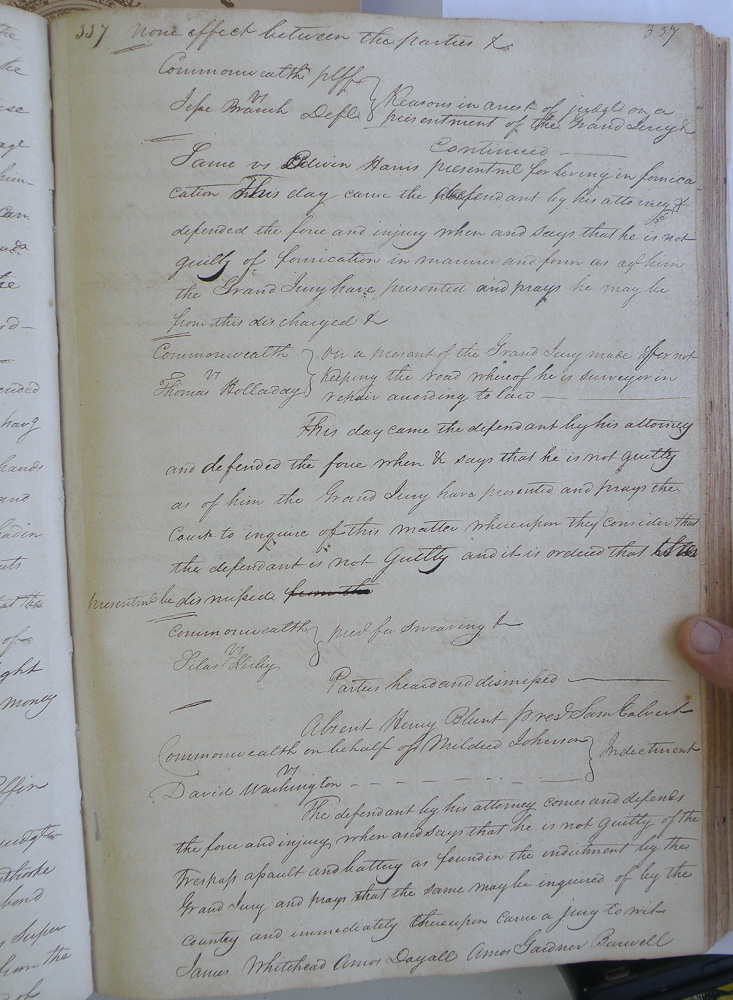 337 none effect between the parties &c 337
Commonwealth plff
vs
Jesse Branch Deft } Reasons in arrest of judgt on a
presentment of the Grand Jury &
Continued
Same vs Edwin Harris presentmt for living in fornica-
cation This day came the defendant by his attorney &
defended the force and injury when and says that he is not
guilty of fornication in manner and form as agt him
the Grand Jury have presented and prays he may be
from this discharged &
Commonwealth
vs
Thomas Holladay } on a present of the Grand Jury made for not
keeping the road whereof he is surveyor in
repair according to law
This day came the defendant by his attorney
and defended the force when & says that he is not guilty
as of him the Grand Jury have presented and prays the
Court to inquire of this matter whereupon they consider that
the defendant is not Guilty and it is ordered that the
presentmt be dismissed from the
Commonwealth
vs
Silas Kirby } pred for swearing &
Parties heard and dismissed
Absent Henry Blunt prest Sam Calvert
Commonwealth on behalf of Mildred Johnson
vs
David Washington } Indictment
The defendant by his attorney comes and defends
the force and injury when and says that he is not guilty of the
trespass assault and battery as found in the indictment by the
Grand Jury and prays that the same may be inquired of by the
country and immediately thereupon came a jury to wit
James Whitehead Amos Dayall Amos Gardner Burwell